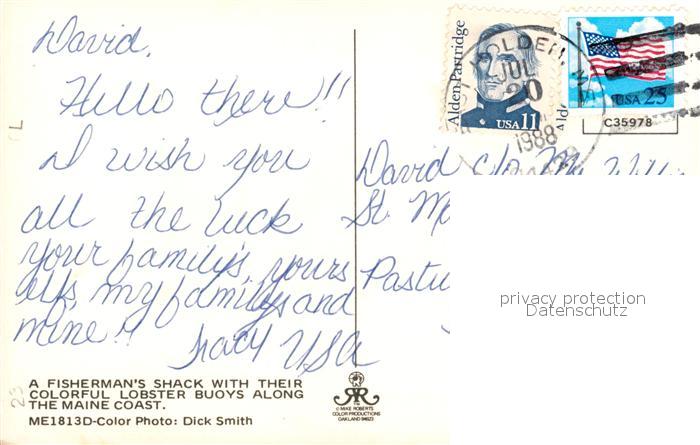 David,
Hello there!!
I wish you
all the luck
your family's, yours
elfs, my family's and
mine!!
Tracy USA
Alden Partridge
USA 11
Alde
USA 25
C35978
HOLDEN, M
JUL
20
1988
David c/o Mr. Will
St. M
Pastu
privacy protection
Datenschutz
A FISHERMAN'S SHACK WITH THEIR
COLORFUL LOBSTER BUOYS ALONG
THE MAINE COAST.
ME1813D-Color Photo: Dick Smith
© MIKE ROBERTS
COLOR PRODUCTIONS
OAKLAND 94623
23